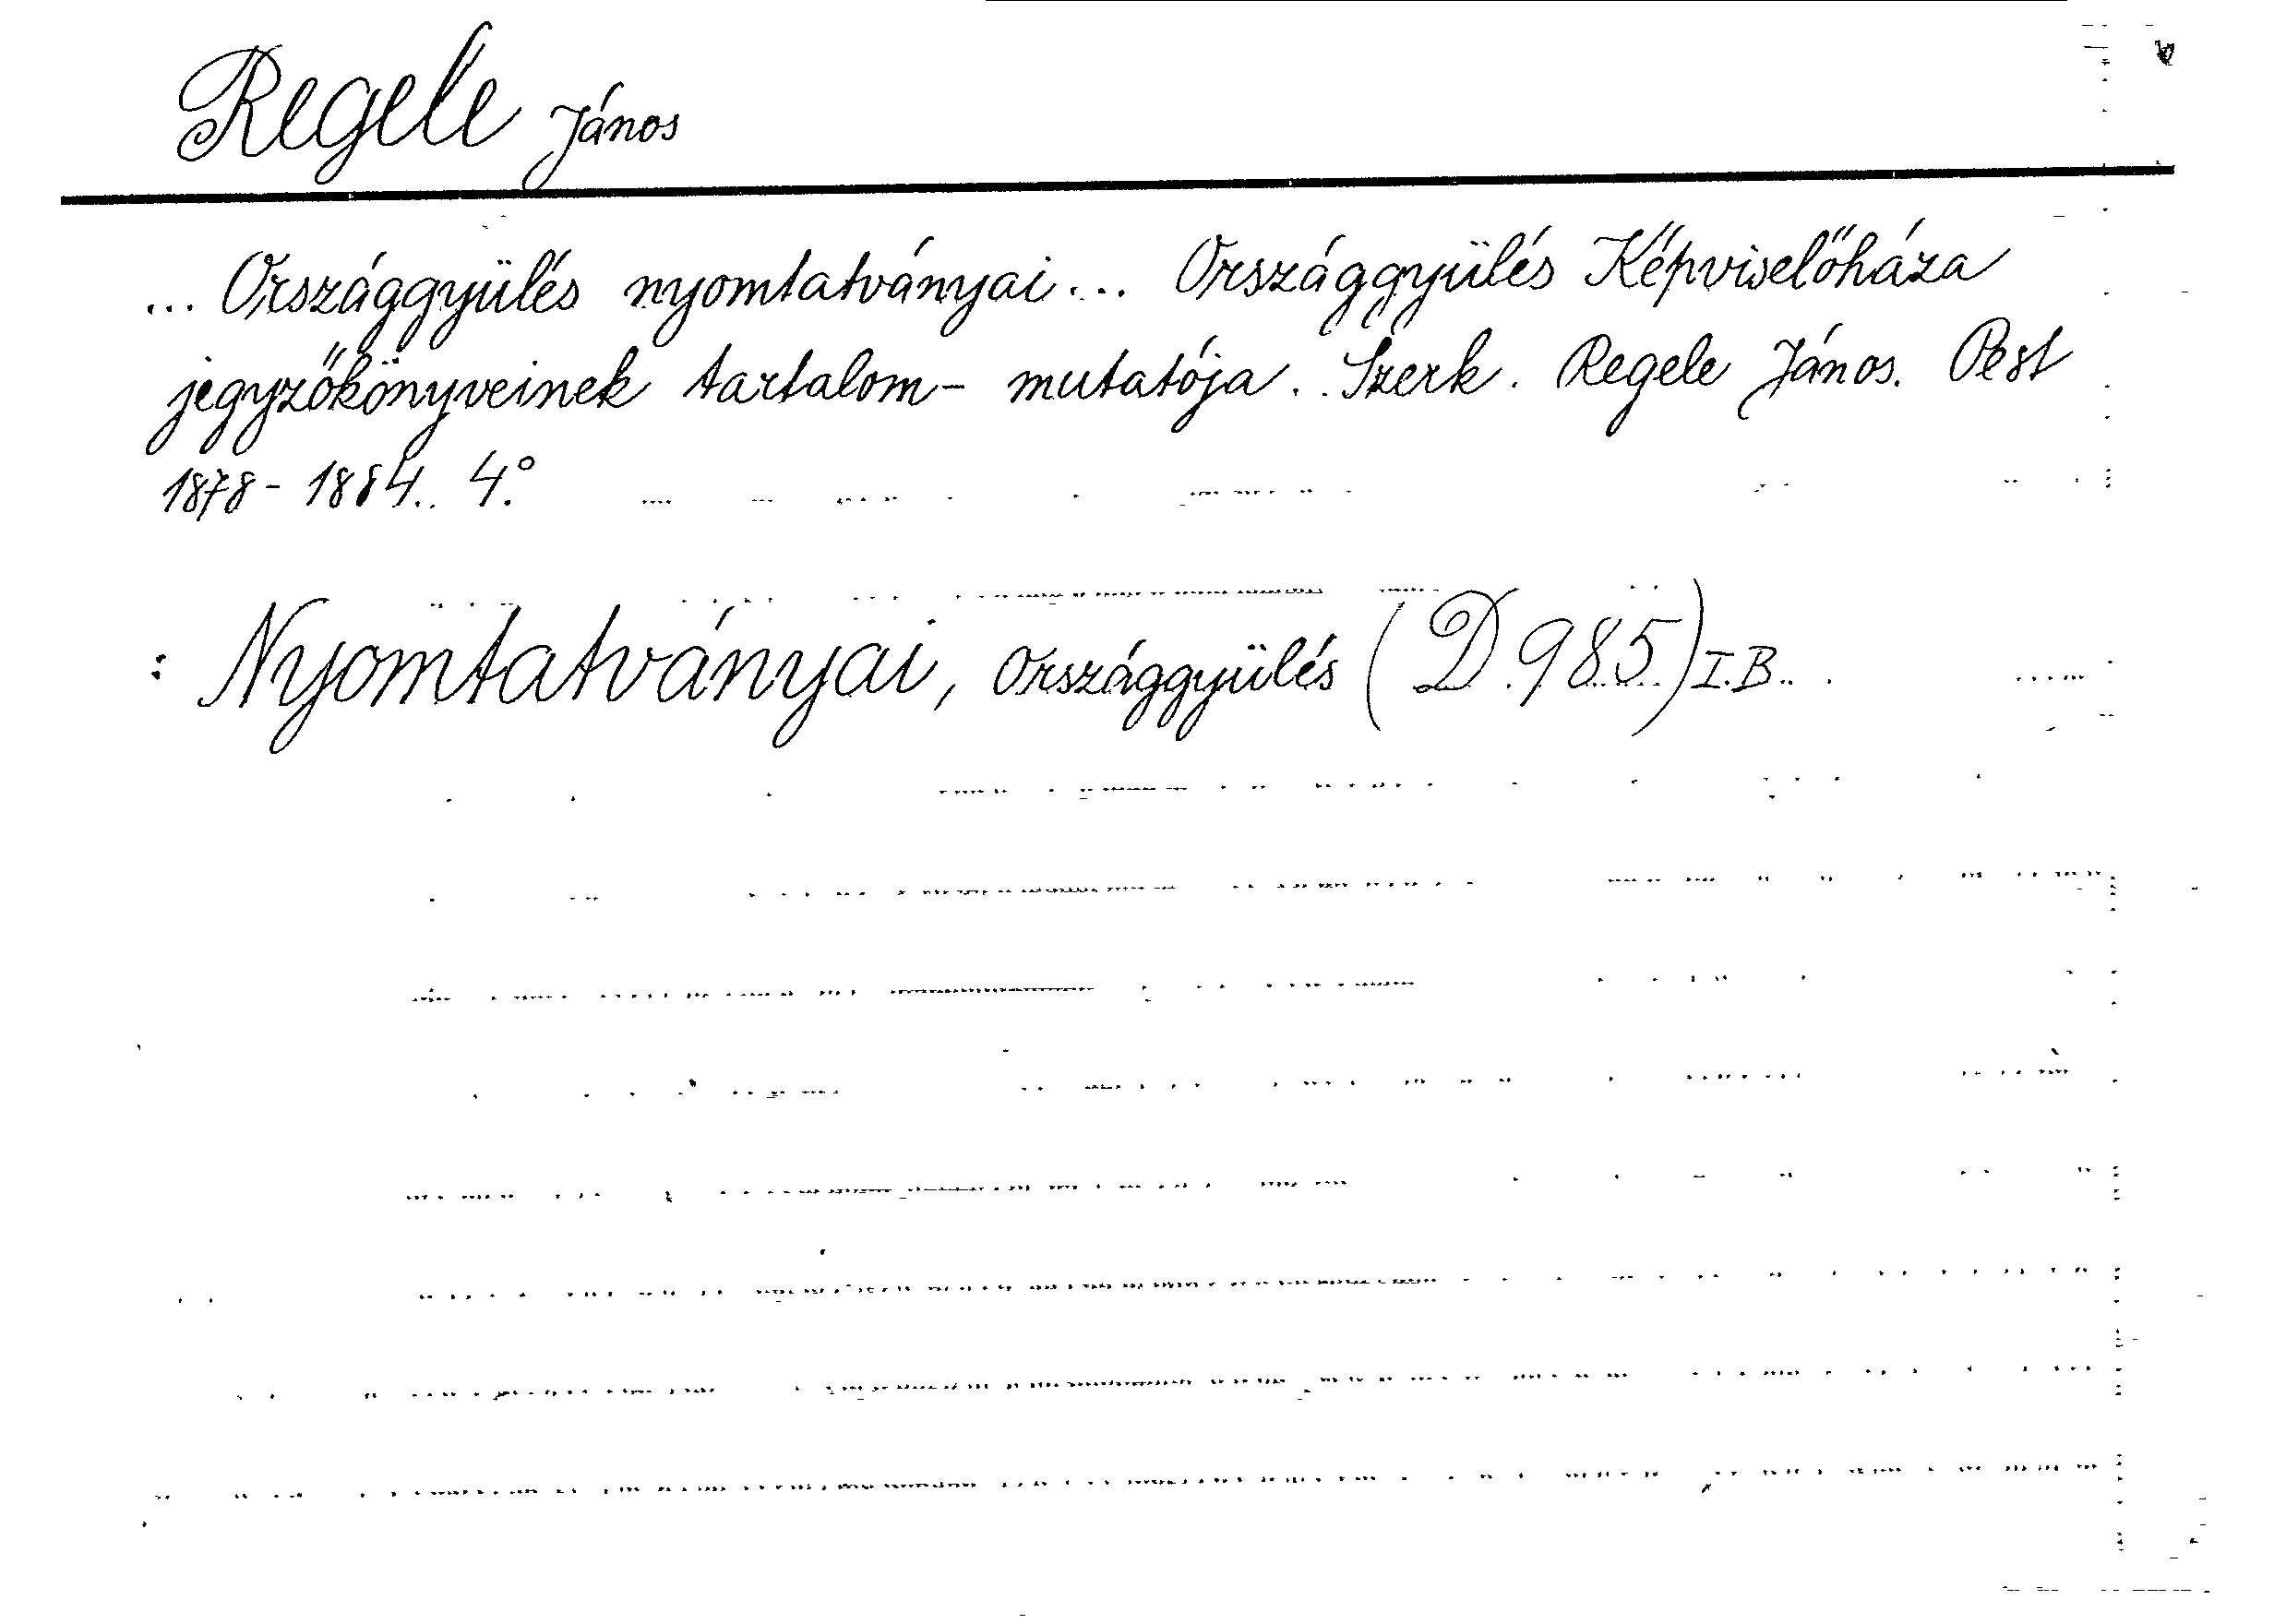 Regele János
... Országgyülés nyomtatványai... Országgyülés Képviselőháza
jegyzőkönyveinek tartalom- mutatója. Szerk. Regele János. Pest
1878-1884. 4.°
: Nyomtatványai, országgyülés (D.985) I.B.